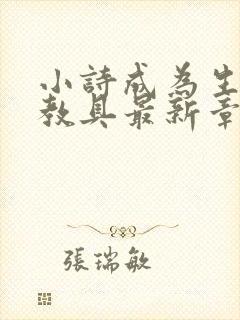 小詩成為生
教具最新章
張瑞敏